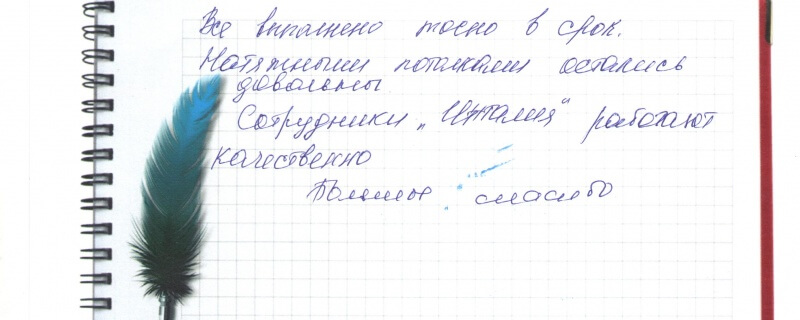 Все выполнено точно в срок.
Натяжными потолками остались
довольны
Сотрудники „Италия" работают
качественно
Большое спасибо